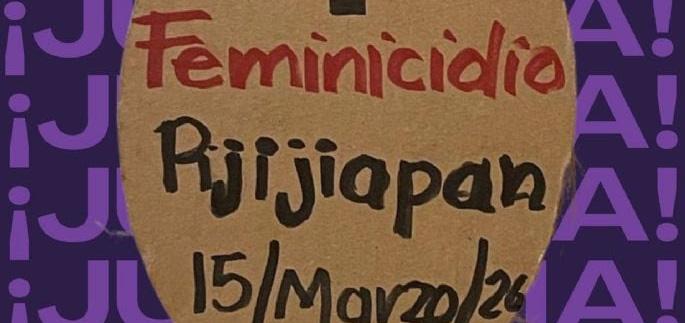 Feminicidio
Pijijiapan
15/Marzo/26
¡JU A!
¡JU A!
¡JU A!
¡JU A!